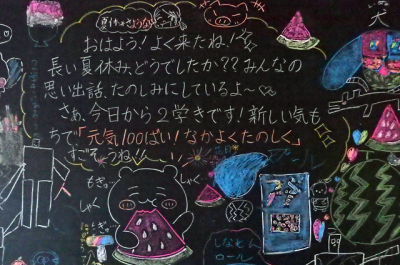 おはよう！よく来たね！
長い夏休み、どうでしたか？？みんなの
思い出話、たのしみにしているよ～♡
さぁ、今日から２学きです！新しい気も
ちで「元気100ぱい！なかよくたのしく」
すごそうね！！
もぎ。
しゃく
しゃく
プール
しなもん
ロール